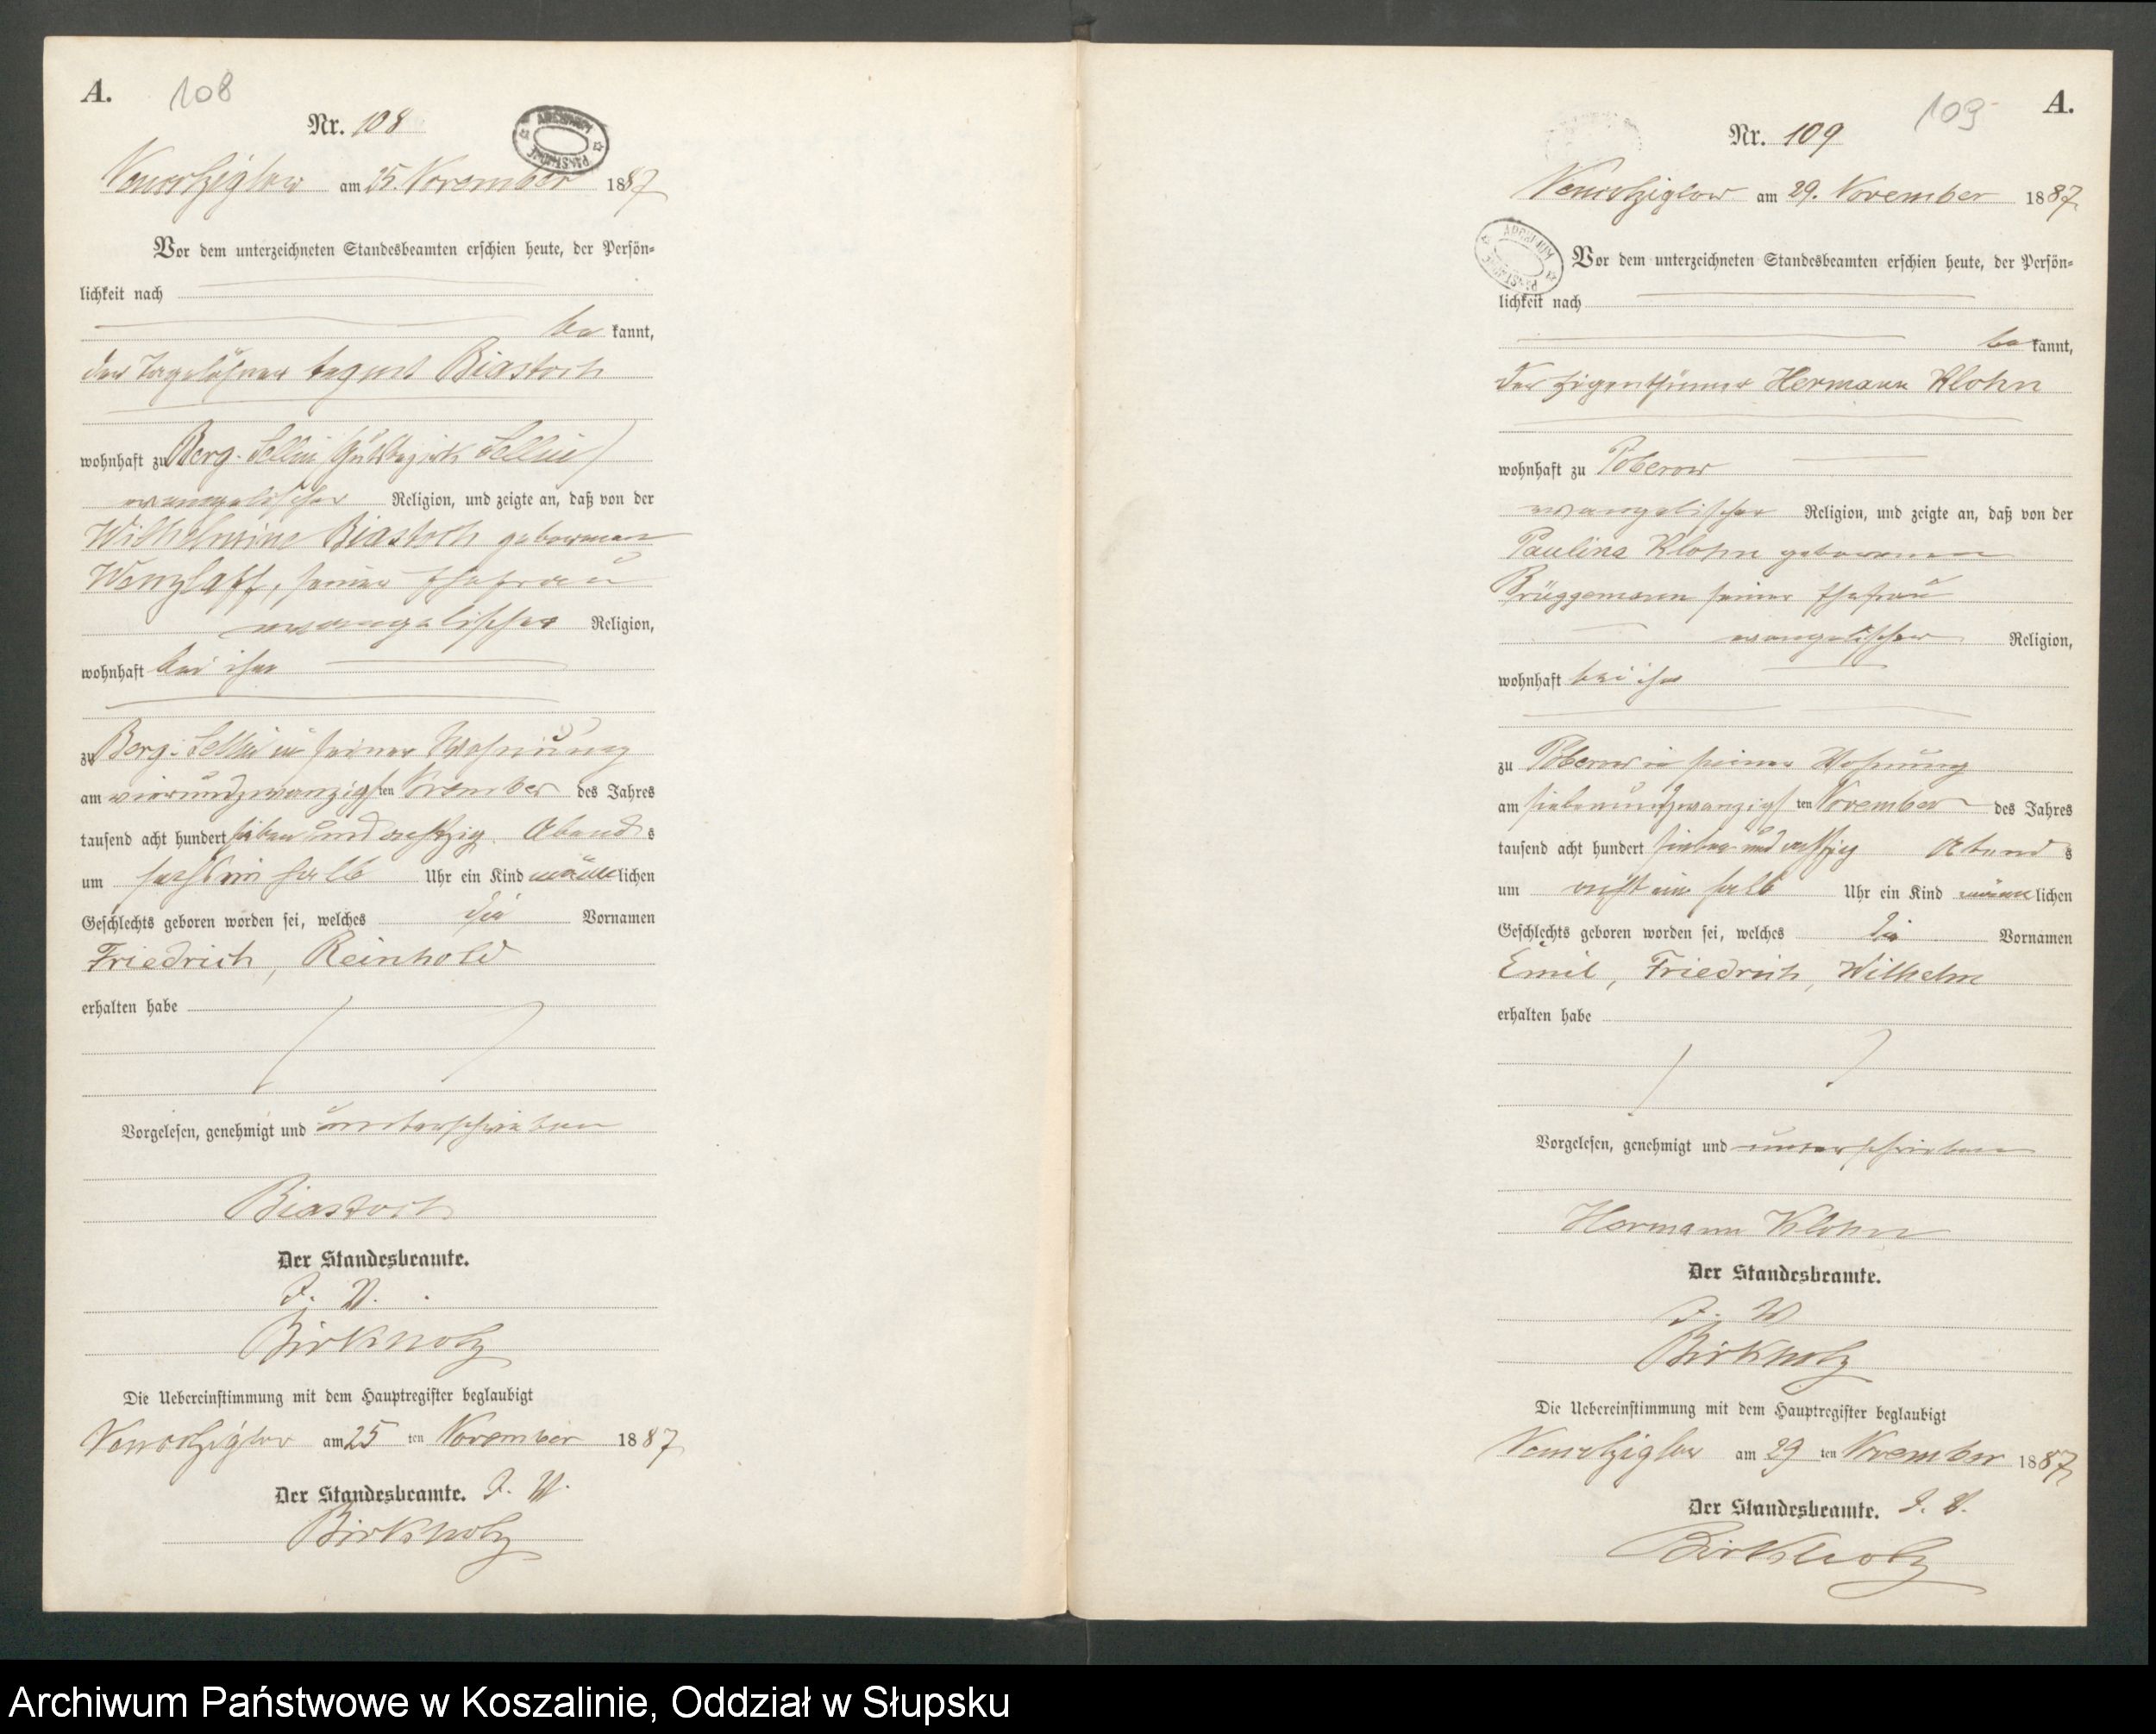 A.
108
Nr. 108
ARCHIWUM PAŃSTWOWE
am 25. November 1887
Vor dem unterzeichneten Standesbeamten erschien heute, der Persön-
lichkeit nach
be kannt,
der Tagelöhner August Biastoch
wohnhaft zu Berg-Sellin (Gutsbezirk Sellin)
evangelischer Religion, und zeigte an, daß von der
Wilhelmine Biastoch geborenen
Wenzlaff, seiner Ehefrau
evangelischer Religion,
wohnhaft bei ihm
zu Berg-Sellin in seiner Wohnung
am vierundzwanzigsten November des Jahres
tausend acht hundert sieben und achtzig Abends
um sechs ein halb Uhr ein Kind männlichen
Geschlechts geboren worden sei, welches die Vornamen
Friedrich, Reinhold
erhalten habe
Vorgelesen, genehmigt und unterschrieben
Biastoch
Der Standesbeamte.
J. V.
Birkholz
Die Uebereinstimmung mit dem Hauptregister beglaubigt
am 25 ten November 1887
Der Standesbeamte. J. V.
Birkholz
A.
109
Nr. 109
am 29. November 1887
ARCHIWUM PAŃSTWOWE
Vor dem unterzeichneten Standesbeamten erschien heute, der Persön-
lichkeit nach
be kannt,
der Eigenthümer Hermann Klohn
wohnhaft zu Poberow
evangelischer Religion, und zeigte an, daß von der
Pauline Klohn geborenen
Brüggemann seiner Ehefrau
evangelischer Religion,
wohnhaft bei ihm
zu Poberow in seiner Wohnung
am siebenundzwanzigsten November des Jahres
tausend acht hundert sieben und achtzig Abends
um acht ein halb Uhr ein Kind männlichen
Geschlechts geboren worden sei, welches die Vornamen
Emil, Friedrich, Wilhelm
erhalten habe
Vorgelesen, genehmigt und unterschrieben
Hermann Klohn
Der Standesbeamte.
J. V.
Birkholz
Die Uebereinstimmung mit dem Hauptregister beglaubigt
am 29 ten November 1887
Der Standesbeamte. J. V.
Birkholz
Archiwum Państwowe w Koszalinie, Oddział w Słupsku